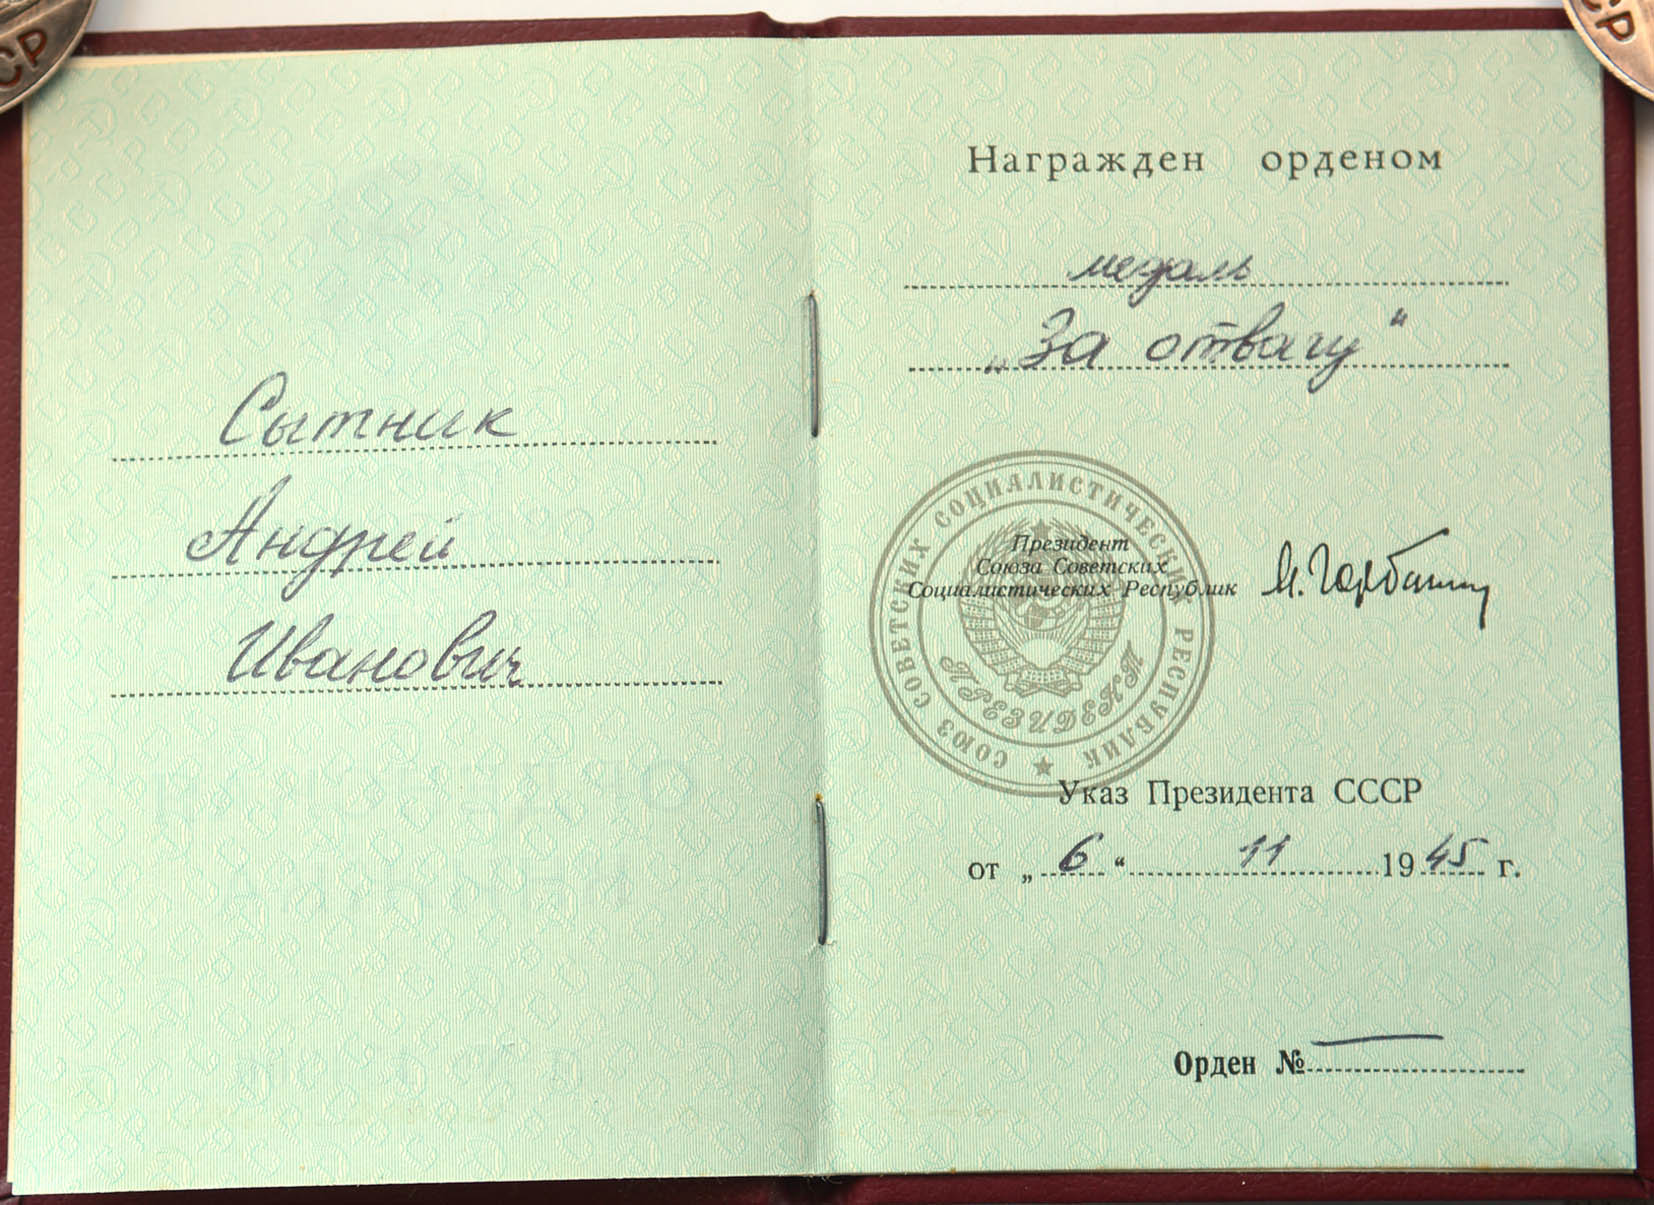 СР
СР
Сытник
Андрей
Иванович
Награжден орденом
медаль
„За отвагу“
СОЮЗ СОВЕТСКИХ СОЦИАЛИСТИЧЕСКИХ РЕСПУБЛИК
ПРЕЗИДЕНТ
Президент
Союза Советских
Социалистических Республик
М. Горбачев
Указ Президента СССР
от „6“ 11 1945 г.
Орден №